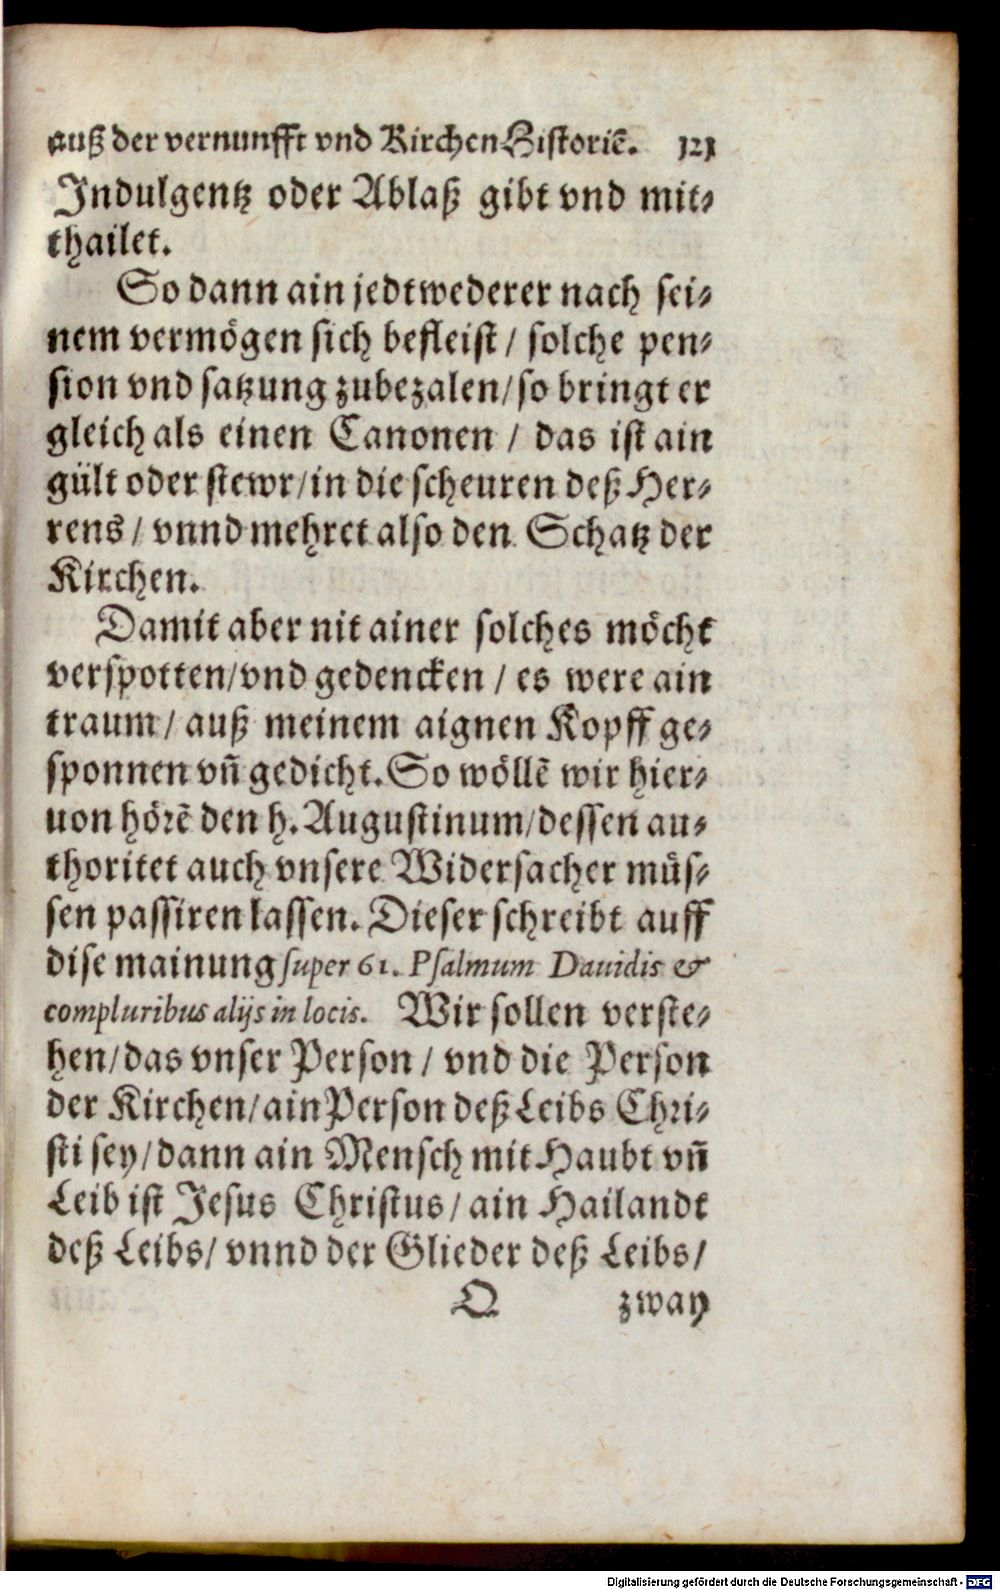 auß der vernunfft vnd Kirchen Historiẽ. 121
Indulgentz oder Ablaß gibt vnd mit⸗
thailet.
So dann ain jedtwederer nach sei⸗
nem vermögen sich befleist / solche pen⸗
sion vnd satzung zubezalen/ so bringt er
gleich als einen Canonen / das ist ain
gült oder stewr/ in die scheuren deß Her⸗
rens / vnnd mehret also den Schatz der
Kirchen.
Damit aber nit ainer solches möcht
verspotten/ vnd gedencken / es were ain
traum / auß meinem aignen Kopff ge⸗
sponnen vñ gedicht. So wöllẽ wir hier⸗
uon hörẽ den h. Augustinum/ dessen au⸗
thoritet auch vnsere Widersacher müs⸗
sen passiren lassen. Dieser schreibt auff
dise mainung super 61. Psalmum Dauidis &
compluribus alijs in locis. Wir sollen verste⸗
hen/ das vnser Person / vnd die Person
der Kirchen/ ain Person deß Leibs Chri⸗
sti sey/ dann ain Mensch mit Haubt vñ
Leib ist Jesus Christus / ain Hailandt
deß Leibs/ vnnd der Glieder deß Leibs/
Q zway
Digitalisierung gefördert durch die Deutsche Forschungsgemeinschaft - DFG